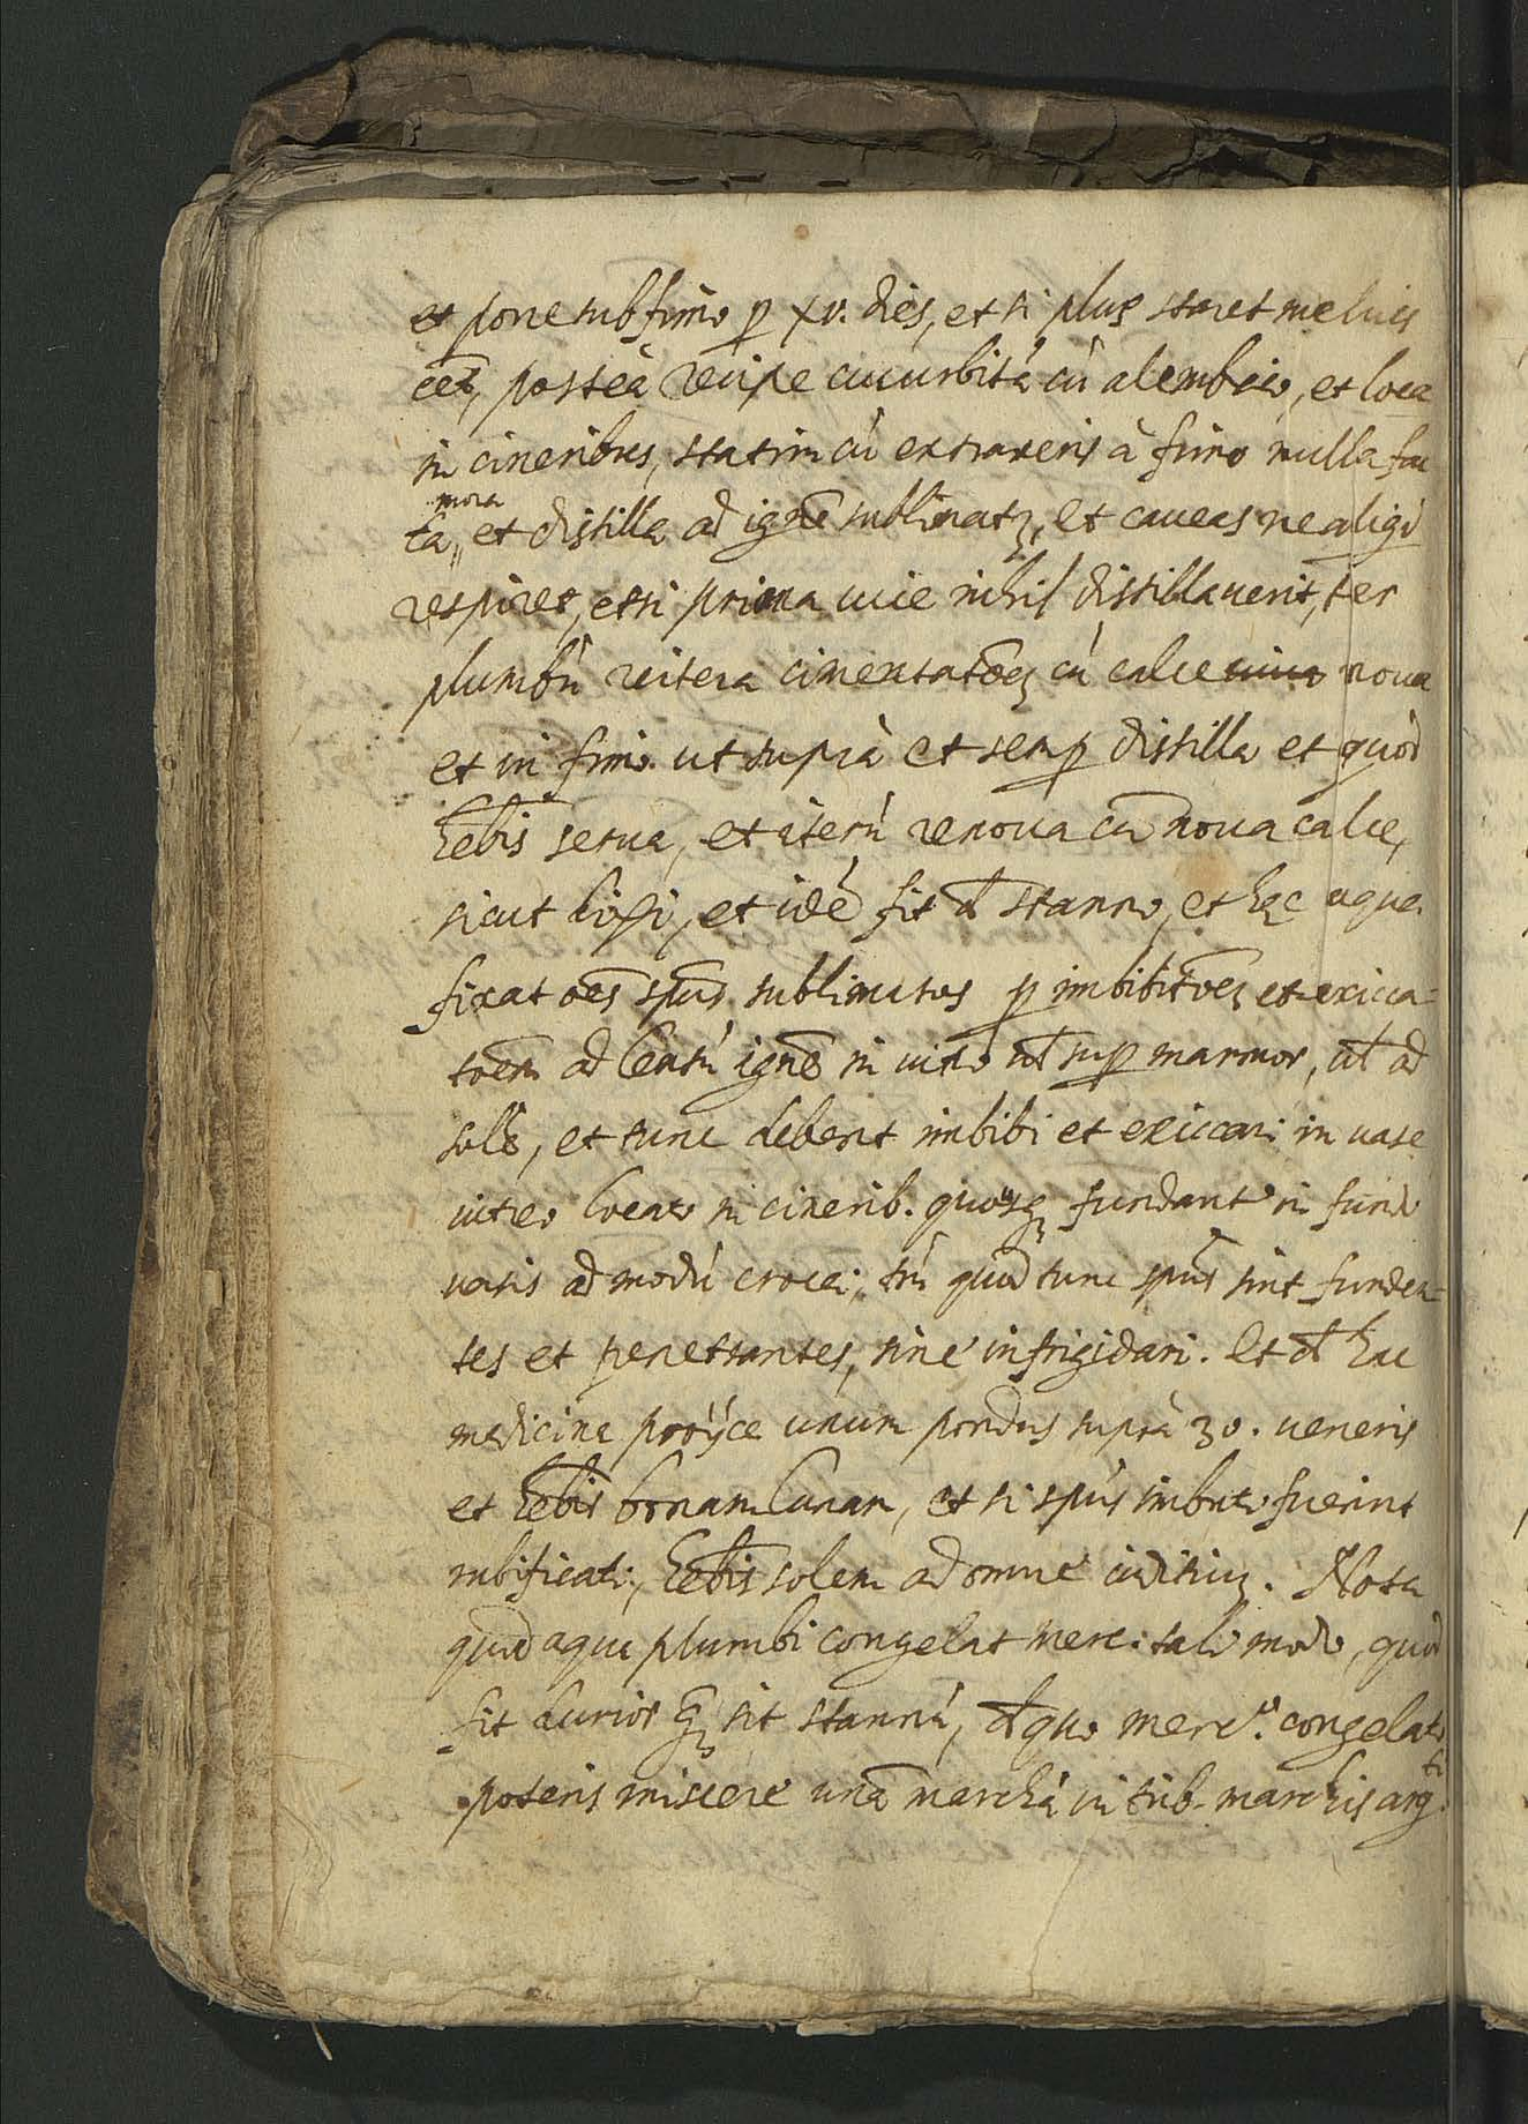 et pone sub fimo p xv. dies, et si plus staret melius
eet, posteà recipe cucurbitá cú alembico, et loca
in cineribus, statim cú extraxeris à fimo nulla fac
ta mora et distilla ad igne sublimatz, et caueas ne aligd
respiret, et si prima uice nihil distillauerit, ter
plumbú reitera cimentatoez cú calce uiua noua
et in fimo ut suprà et semp distilla et quòd
hebis serua, et iterú renoua cu noua calce,
sicut dixi, et idé fit d stanno, et hec aqua
fixat oes spus sublimatos p imbibitoez et exicca=
toem ad lentú igne in uitro ut sup marmor, ut ad
sole, et tunc debent imbibi et exiccari in uase
uitreo locato in cinerib. quousq fundant in fundo
uasis ad modú crocei, tn quod tunc spus sint funden=
tes et penetrantes, sine infrigidari. Et d hac
medicina proijce unum pondus suprà 30. ueneris
et hebis bonam Lunam, et si spus imbuti fuerint
rubificati, hebis solem ad omne iuditiuz. Nota
quod aqua plumbi congelat merc: tali modo, quòd
fit durior q sit stannú, d quo merc.o congelato
poteris miscere una marchá in trib. marchis arg.ti